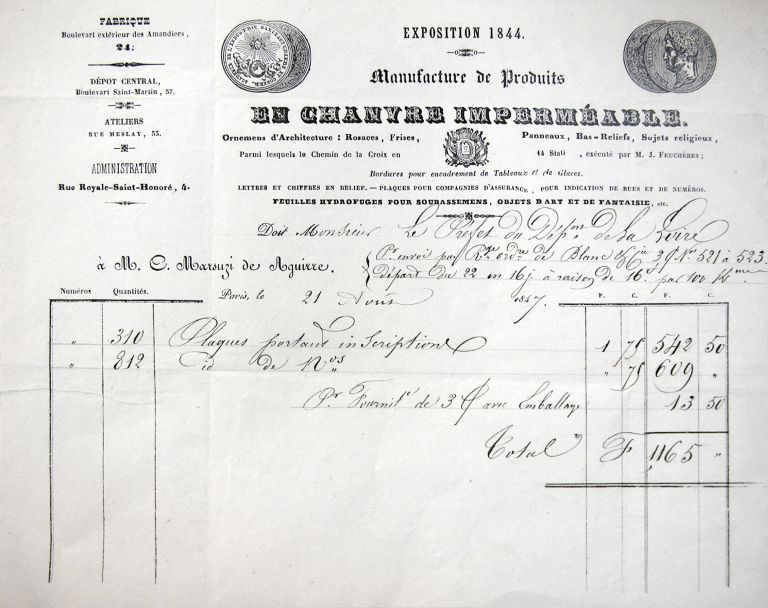 FABRIQUE
Boulevart extérieur des Amandiers,
24;
DÉPOT CENTRAL,
Boulevart Saint-Martin, 57.
ATELIERS
RUE MESLAY, 55.
ADMINISTRATION
Rue Royale-Saint-Honoré, 4.
EXPOSITION 1844.
Manufacture de Produits
EN CHANVRE IMPERMÉABLE.
Ornemens d'Architecture : Rosaces, Frises, Panneaux, Bas-Reliefs, Sujets religieux,
Parmi lesquels le Chemin de la Croix en 14 Stati , exécuté par M. J. FEUCHÈRES ;
Bordures pour encadrement de Tableaux et de Glaces.
LETTRES ET CHIFFRES EN RELIEF. — PLAQUES POUR COMPAGNIES D'ASSURANCE, POUR INDICATION DE RUES ET DE NUMÉROS.
FEUILLES HYDROFUGES POUR SOUBASSEMENS, OBJETS D'ART ET DE FANTAISIE, etc.
Doit Monsieur Le Préfet du Dépon de La Loire
à M. C. Marsuzi de Aguirre.
Pr envoi par Rge ordre de Blanc & Cie 3 C Nos 521 à 523.
départ du 22 en 16 j à raison de 16 f par 100 K
Paris, le 21 Aout 1847.
Numéros Quantités. F. C. F. C.
" 310 Plaques portant inscription 1 75 542 50
" 812 id de Nos " 75 609 "
Pr Fournit de 3 C avec Emballage 13 50
Total F 1165 "